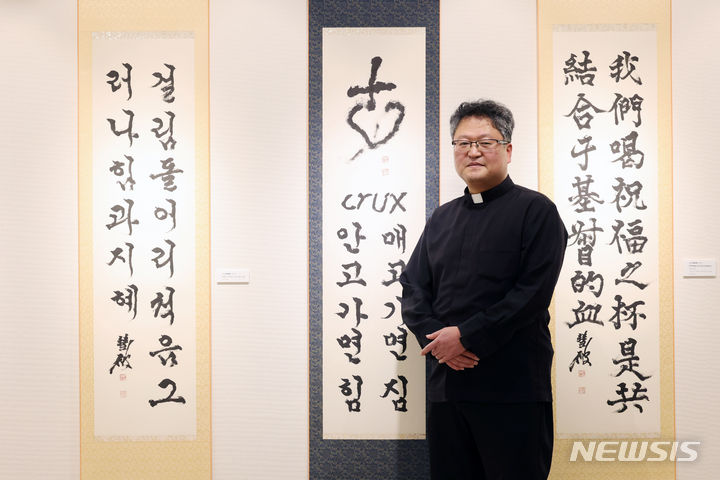 걸림돌어리석음그
러나힘과지혜
crux
매고가면짐
안고가면힘
我們喝祝福之杯是共
結合于基督的血
NEWSIS